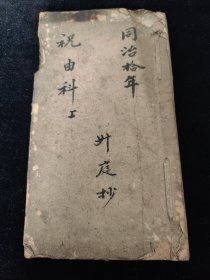 同治拾年
祝由科上
廾庭抄